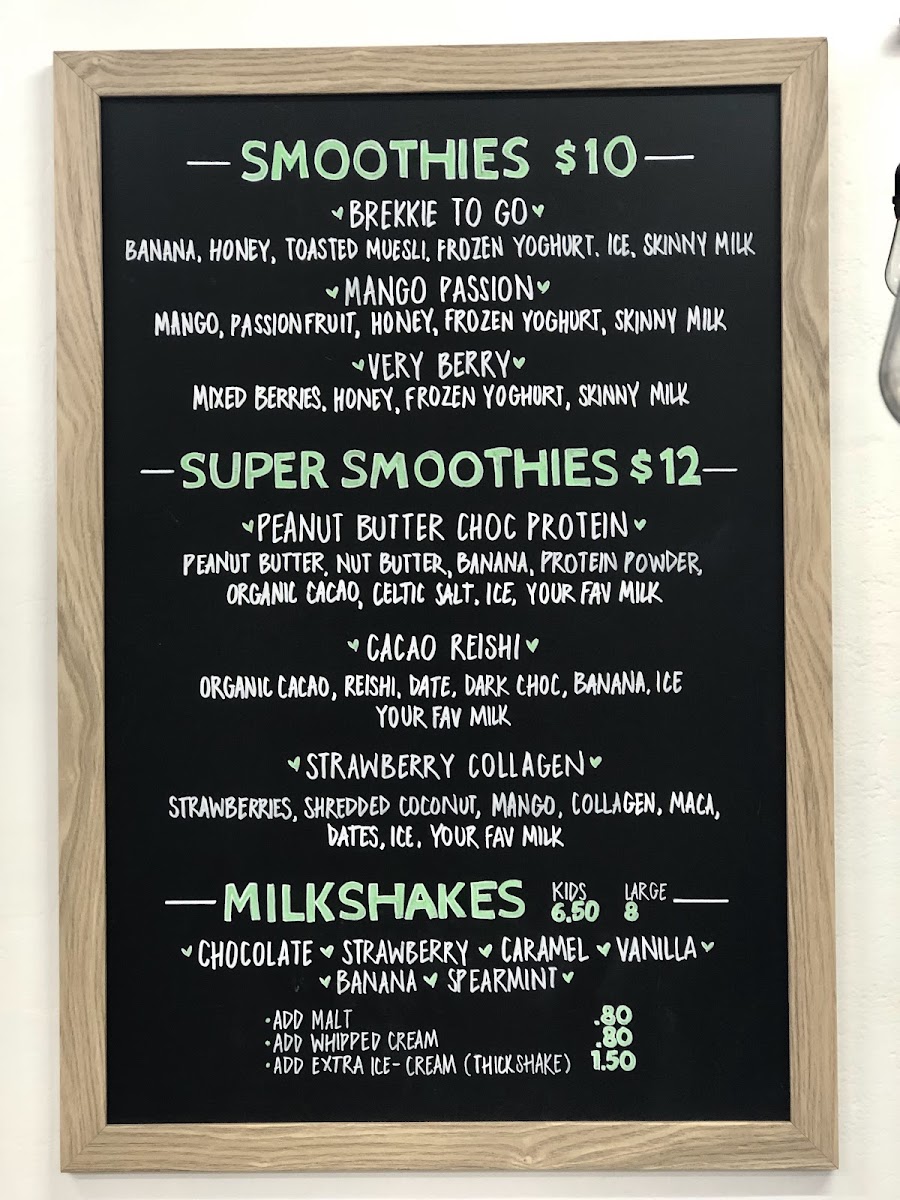 SMOOTHIES $10
BREKKIE TO GO
BANANA, HONEY, TOASTED MUESLI, FROZEN YOGHURT. ICE, SKINNY MILK
MANGO PASSION
MANGO, PASSIONFRUIT, HONEY, FROZEN YOGHURT, SKINNY MILK
VERY BERRY
MIXED BERRIES, HONEY, FROZEN YOGHURT, SKINNY MILK
SUPER SMOOTHIES $12
PEANUT BUTTER CHOC PROTEIN
PEANUT BUTTER, NUT BUTTER, BANANA, PROTEIN POWDER,
ORGANIC CACAO, CELTIC SALT. ICE, YOUR FAV MILK
CACAO REISHI
ORGANIC CACAO, REISHI, DATE, DARK CHOC, BANANA, ICE
YOUR FAV MILK
STRAWBERRY COLLAGEN
STRAWBERRIES, SHREDDED COCONUT, MANGO, COLLAGEN, MACA,
DATES, ICE, YOUR FAV MILK
MILKSHAKES KIDS 6.50 LARGE 8
CHOCOLATE STRAWBERRY CARAMEL VANILLA
BANANA SPEARMINT
• ADD MALT .80
• ADD WHIPPED CREAM .80
• ADD EXTRA ICE-CREAM (THICKSHAKE) 1.50